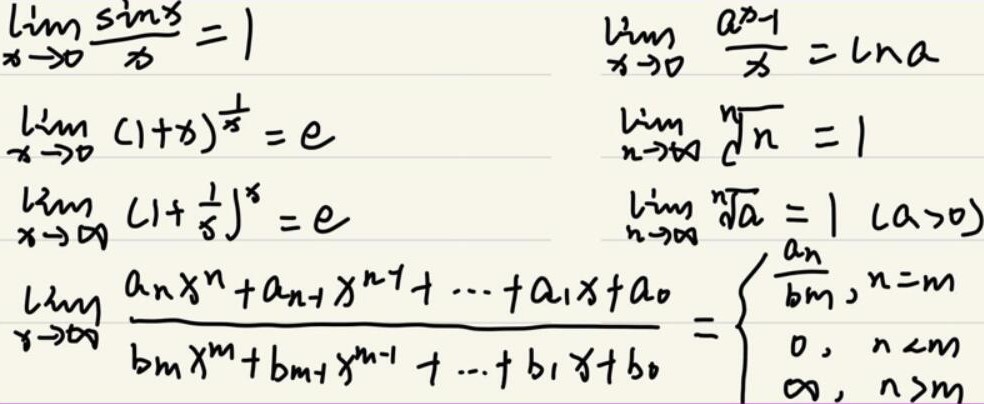 lim x→0 sinx/x = 1
lim x→0 (a^x-1)/x = lna
lim x→0 (1+x)^(1/x) = e
lim n→∞ ⁿ√n = 1
lim x→∞ (1+1/x)^x = e
lim n→∞ ⁿ√a = 1 (a>0)
lim x→∞ (aₙxⁿ+aₙ₋₁xⁿ⁻¹+…+a₁x+a₀)/(bₘxᵐ+bₘ₋₁xᵐ⁻¹+…+b₁x+b₀) = { aₙ/bₘ, n=m
0, n<m
∞, n>m